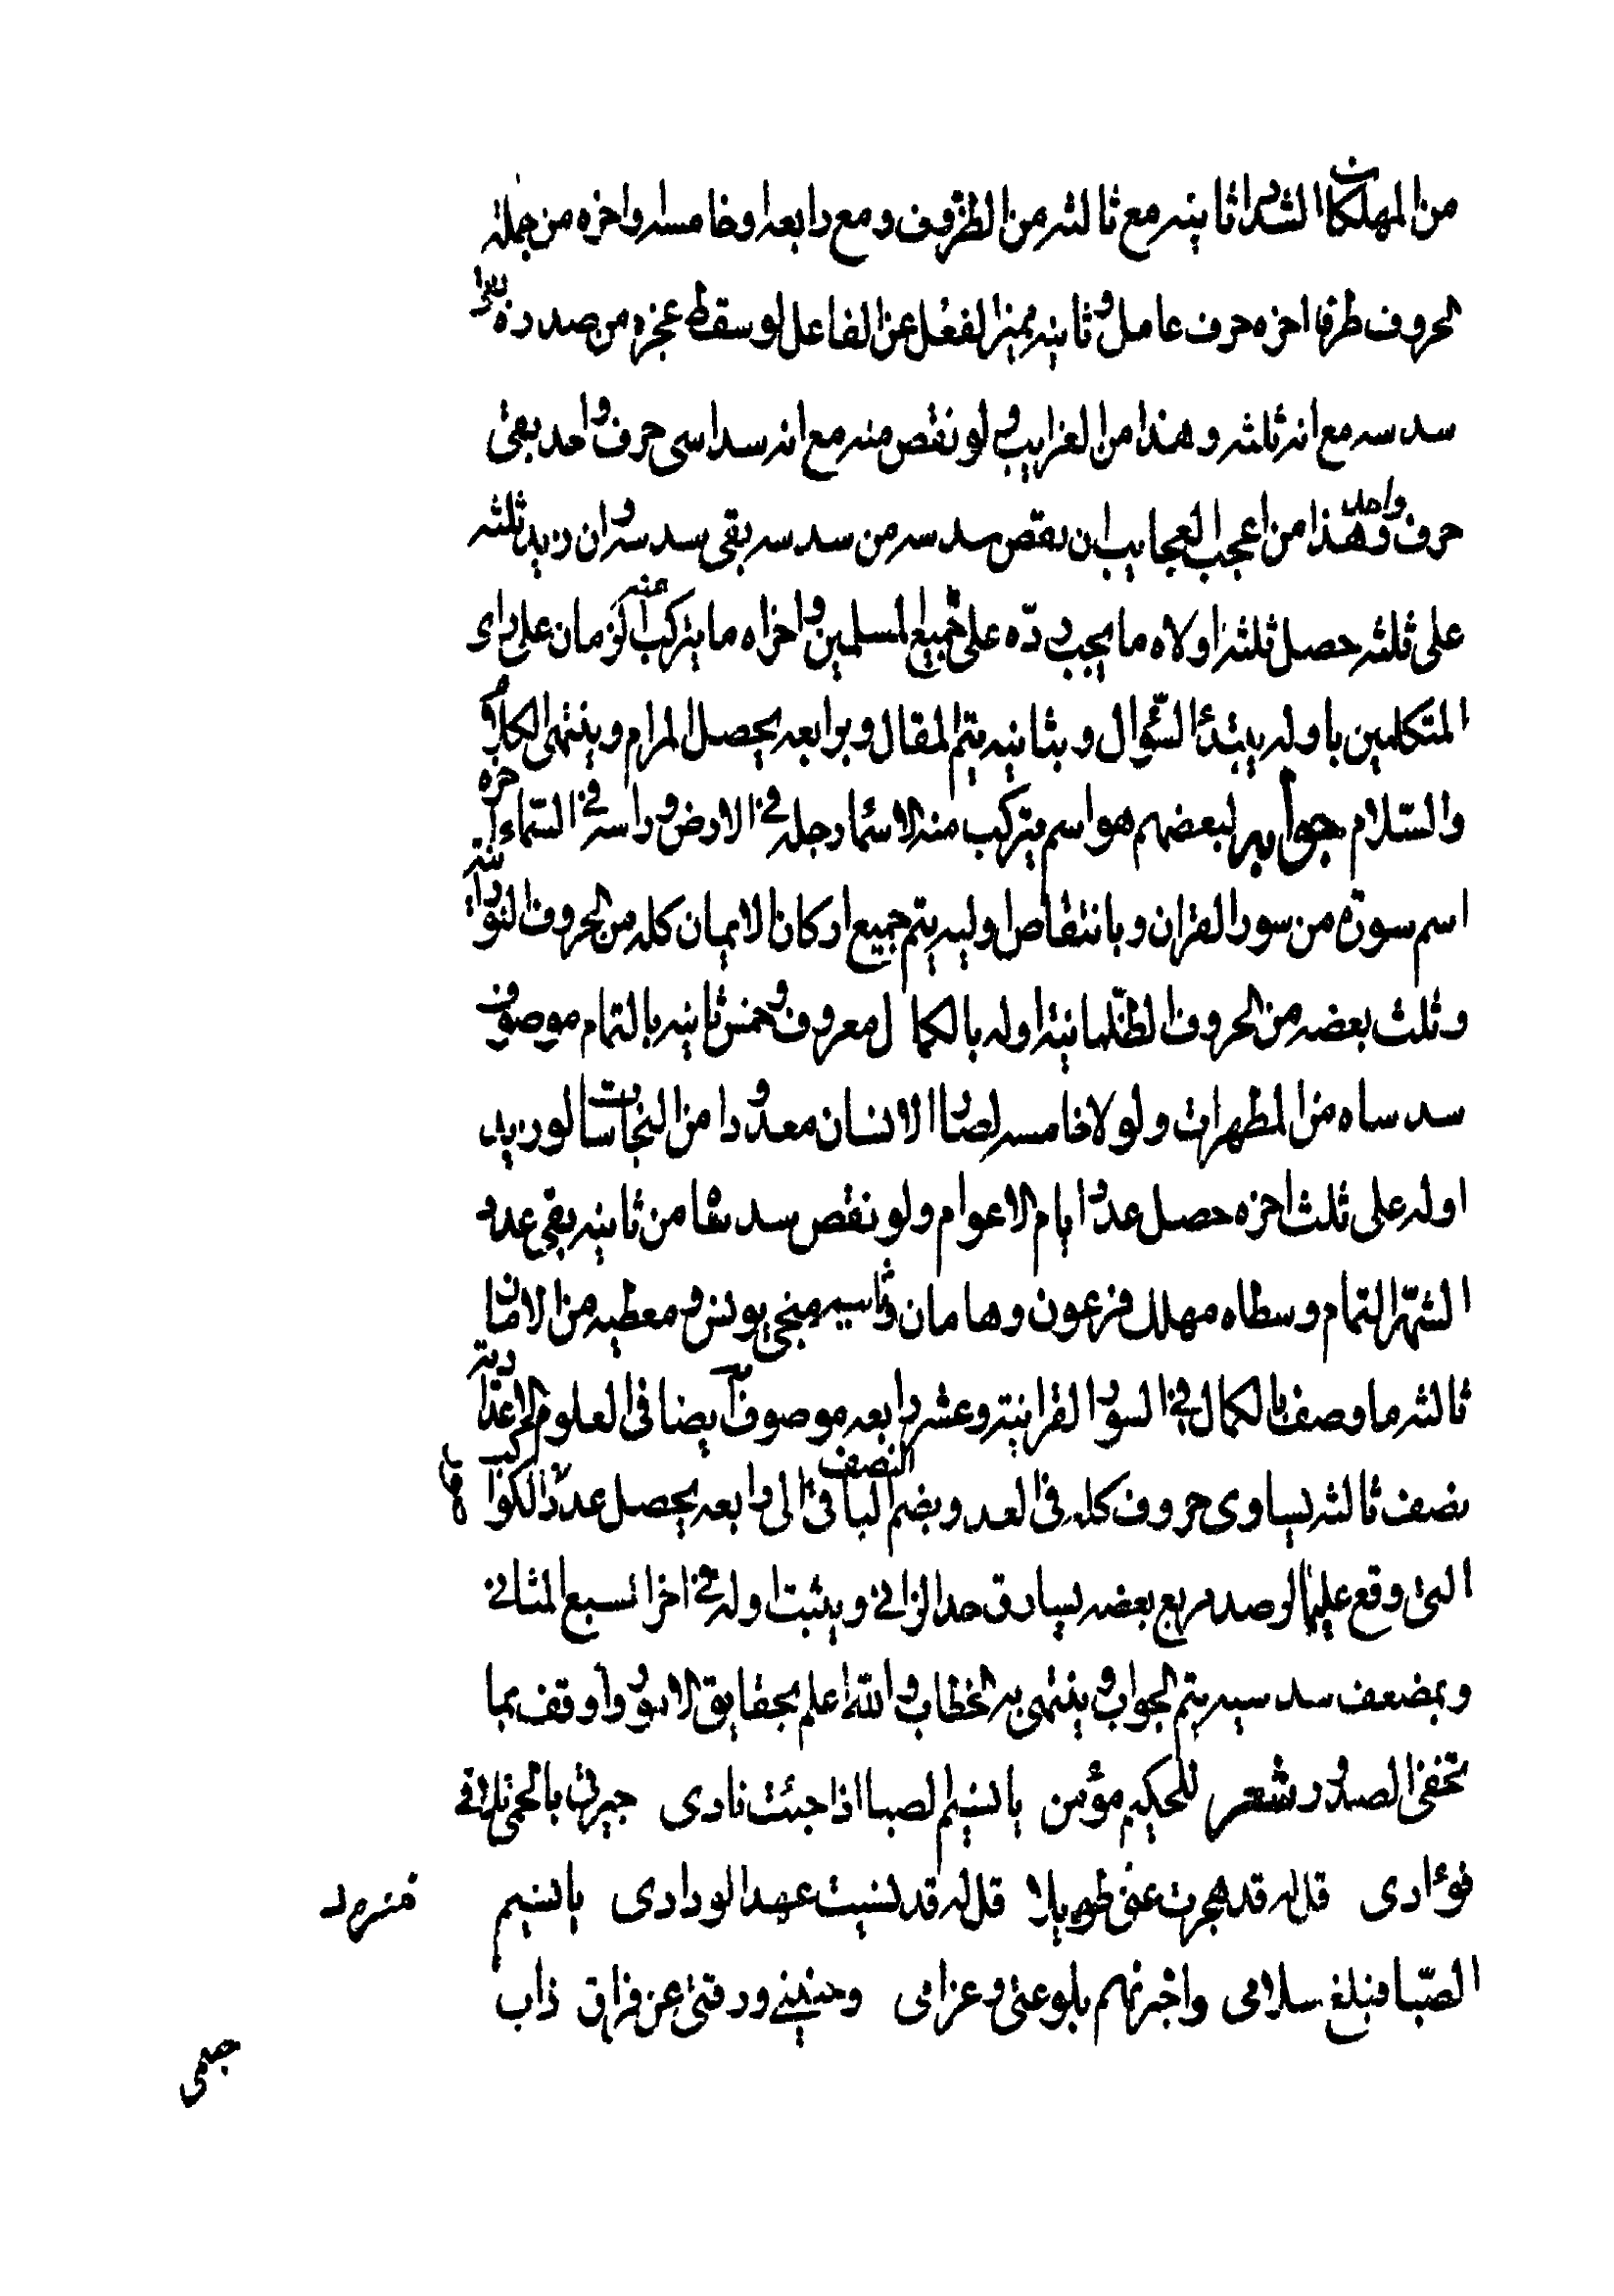 من المهلكات الشداد ثانيه مع ثالثه من الظروف ومع رابعه او خامسه واخره من جملة
الحروف طرفا اخره حرف عامل وثانيه يميز الفعل عن الفاعل لو سقط عجزه من صدره زاد
سدسه مع انه ثلثه وهذا من الغرايب ولو نقص منه مع انه سداسى حرف واحد بقى
حرف واحد وهذا من اعجب العجايب ان نقص سدسه من سدسه بقى سدسه وان زيد ثلثه
على ثلثه حصل ثلثه اولاه ما يجب رده على جميع المسلمين واخراه ما يتركب منه الزمان على راى
المتكلمين باوله يبتدأ السؤال وبثانيه يتم المقال وبرابعه يحصل المرام وينتهى الكلام
والسلام جوابه لبعضهم هو اسم يتركب منه الاسما رجله فى الارض وراسه فى السماء اخره
اسم سورة من سور القران وبانتقاص اوليه يتم جميع اركان الايمان كله من الحروف النورانية
وثلث بعضه من الحروف الظلمانية اوله بالكمال معروف وخمس ثانيه بالتمام موصوف
سدساه من المطهرات ولولا خامسه لصار الانسان معدودا من النجاسات لو زيد
اوله على ثلث اخره حصل عدد ايام الاعوام ولو نقص سدسا من ثانيه بقى عدد
الشهر التمام وسطاه مهلك فرعون وهامان منجى يونس ومعطيه من الامان
ثالثه ما وصف بالكمال فى السور القرانية وعشر رابعه موصوف ايضا فى العلوم
نصف ثالثه يساوى حروف كله فى العدد وبضم الباقى النصف الى رابعه يحصل عدد الكواكب
التى وقع عليها الرصد مربع بعضه يساوق حد الزانى ويثبت اوله فى اخر السبع المثانى
وبمضعف سدسيه يتم الجواب وينتهى به الخطاب والله اعلم بحقايق الامور واوقف بما
تخفى الصدور شعر للحكيم مؤمن يا نسيم الصبا اذا جئت نادى جيرتى بالحمى تلاقى
فؤادى قل له قد هجرت عنى طويلا قل له قد نسيت عهد الودادى يا نسيم
الصبا فبلغ سلامى واخبرنهم بلوعتى وغرامى وحنينى ورقتى عن فراق ذاب